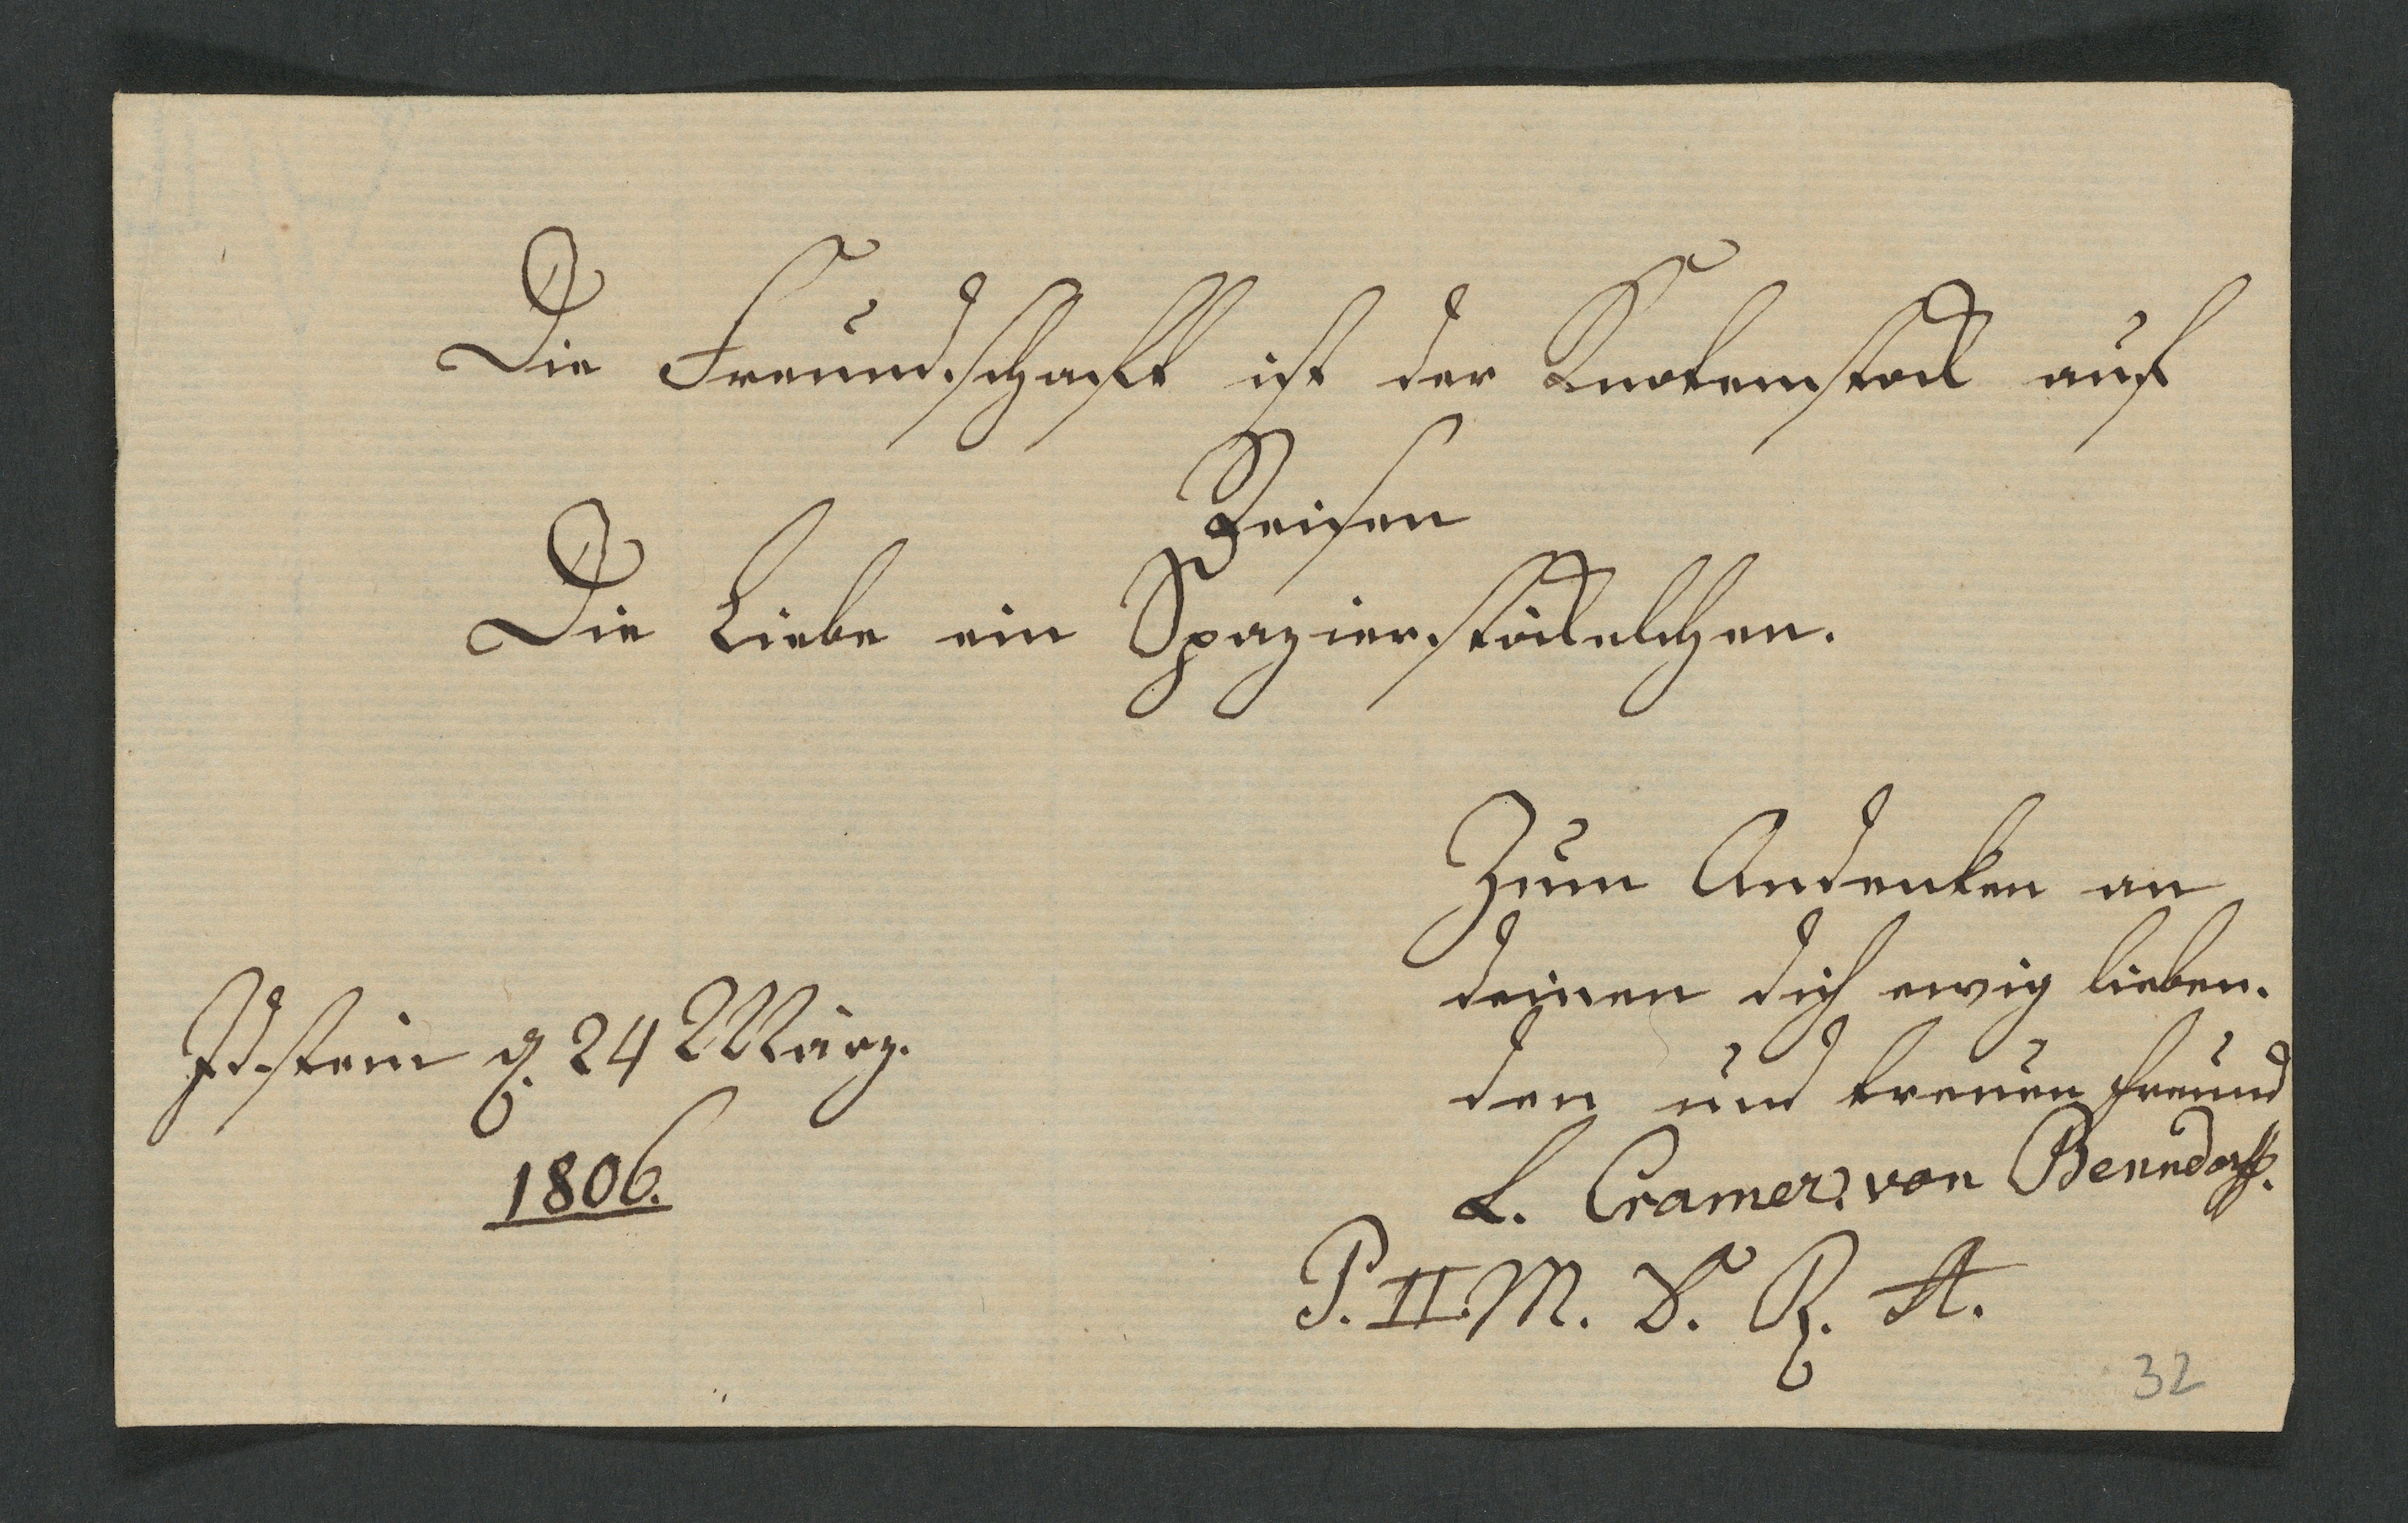 Die Freundschaft ist der Knotenstock auf
Reisen
Die Liebe ein Spazierstöckelchen.
Zum Andenken an
deinen dich ewig lieben-
den und treuen Freund
L. Cramer, von Benndorff.
Idstein d. 24 März.
1806.
P. II. M. S. R. A.
32